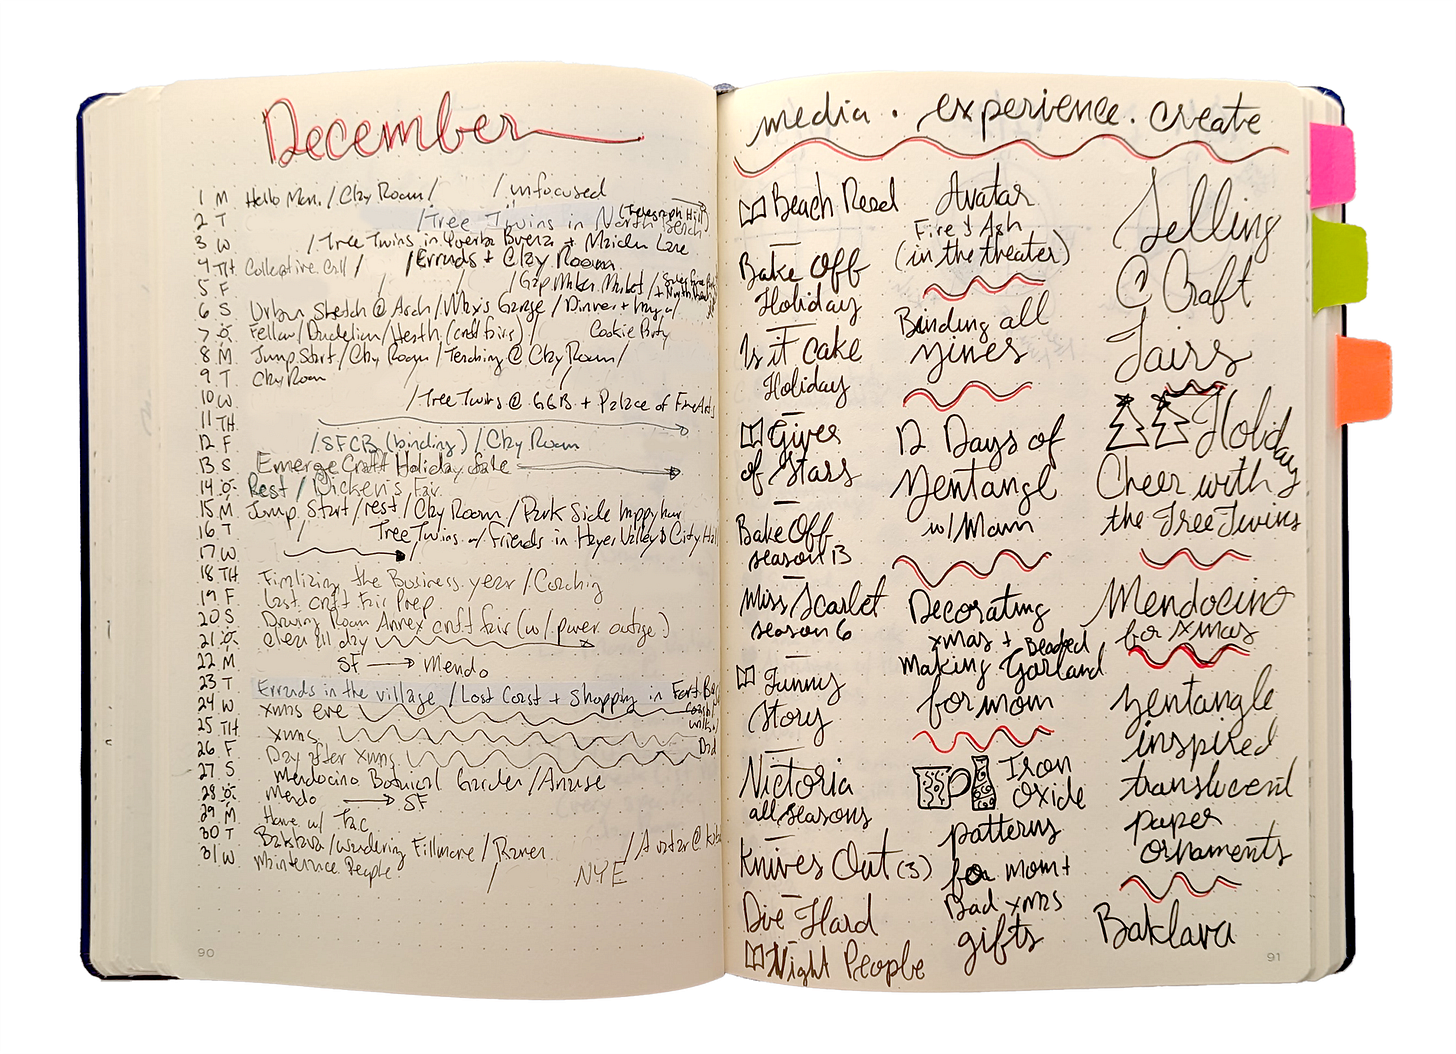 December
1 M Hello Mon. / Clay Room / / unfocused
2 T / Tree Twins in North Beach (Telegraph Hill)
3 W / Tree Twins in Yuerba Buena + Maiden Lane
4 TH Collective Call / / Errands + Clay Room
5 F / / Gap Maker Market /
6 S Urban Stretch @ Arch / Max's Garage / Dinner + hang w/
7 S. Fellow / Dudelian / Heath (craft fairs) / Cookie Party
8 M Jump Start / Clay Room / Teaching @ Clay Room /
9 T Clay Room
10 W / Tree Twins @ GGB + Palace of Fine Arts
11 TH
12 F / SFCB (binding) / Clay Room
13 S Emerge Craft Holiday Sale
14 S. Rest / Dickens Fair
15 M Jump Start / rest / Clay Room / Park Side happy hour
16 T / Tree Twins w/ Friends in Hayes Valley & City Hall
17 W
18 TH Finalizing the Business year / Coaching
19 F Last craft Fair Prep
20 S Drawing Room Annex craft fair (w/ power outage)
21 S. clean all day
22 M SF → Mendo
23 T Errands in the village / Lost Coast + Shopping in Fort Bragg
24 W xmas eve
25 TH xmas
26 F Day after xmas
27 S Mendocino Botanical Garden / Amuse
28 S. Mendo → SF
29 M Home w/
30 T Baklava / wandering Fillmore / Raven / Avatar @
31 W Maintence People NYE
90
media . experience . create
Beach Read
Bake Off
Holiday
Is it Cake
Holiday
Giver
of Stars
Bake Off
season 13
Miss Scarlet
season 6
Funny
Story
Victoria
all seasons
Knives Out (3)
Die Hard
Night People
Avatar
Fire & Ash
(in the theater)
Binding all
zines
12 Days of
Zentangl
w/ Mom
Decorating
xmas + Beaded
making Garland
for mom
Iron
Oxide
patterns
for mom +
Dad xmas
gifts
Selling
@ Craft
Fairs
Holiday
Cheer with
the Tree Twins
Mendocino
for xmas
Zentangle
inspired
translucent
paper
ornaments
Baklava
91